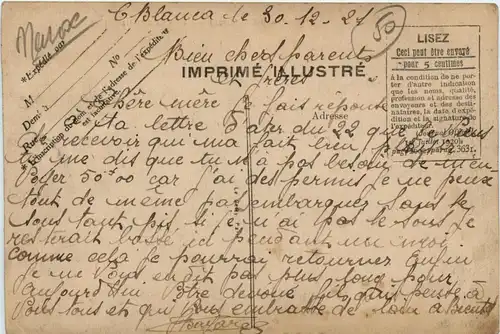 Maroc
C Blanca le 30.12.21
50
Bien chers parents
et frères
IMPRIMÉ ILLUSTRÉ
LISEZ
Ceci peut être envoyé
pour 5 centimes
à la condition de ne porter
d'autre indication
que les noms, qualité,
profession et adresse des
envoyeurs et des destinataires,
la date d'expédition
et la signature de
l'expéditeur.
"Expédié par
M
Demt à
Rue
No
Adresse
Chère mère je fais réponse
ta lettre dater du 22 que je viens
de recevoir qui ma fait bien plaisir
tu me dis que tu n'a pas besoin de m'envoyer
50.00 car j'ai des permis je ne peux
tout de même pas embarquer sans le
sous tant pis si je n'ai pas le sous je
resterait ici pendant un mois
comme cela je pourrai retourner Enfin
je ne vous en dit pas plus long pour
aujourd'hui Votre dévoué fils qui pense à
vous tous et qui vous embrasse de loin à bientôt